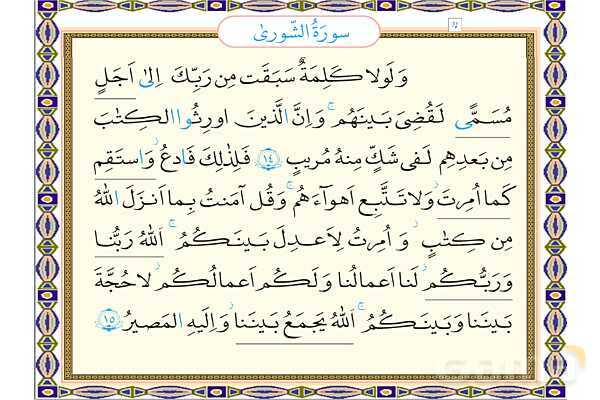 سورَةُ الشّورىٰ
وَ لَولا كَلِمَةٌ سَبَقَت مِن رَبِّكَ اِلىٰ اَجَلٍ
مُسَمًّى لَقُضِىَ بَينَهُم ۚ وَ اِنَّ الَّذينَ اورِثُوا الكِتٰبَ
مِن بَعدِهِم لَفى شَكٍّ مِنهُ مُريبٍ ﴿١٤﴾ فَلِذٰلِكَ فَادعُ ۖ وَاستَقِم
كَما اُمِرتَ ۖ وَلا تَتَّبِع اَهوآءَهُم ۖ وَ قُل آمَنتُ بِما اَنزَلَ اللّٰهُ
مِن كِتٰبٍ ۖ وَ اُمِرتُ لِاَعدِلَ بَينَكُمُ ۖ اَللّٰهُ رَبُّنا
وَ رَبُّكُم ۖ لَنا اَعمالُنا وَ لَكُم اَعمالُكُم ۖ لا حُجَّةَ
بَينَنا وَ بَينَكُمُ ۖ اَللّٰهُ يَجمَعُ بَينَنا ۖ وَ اِلَيهِ المَصيرُ ﴿١٥﴾